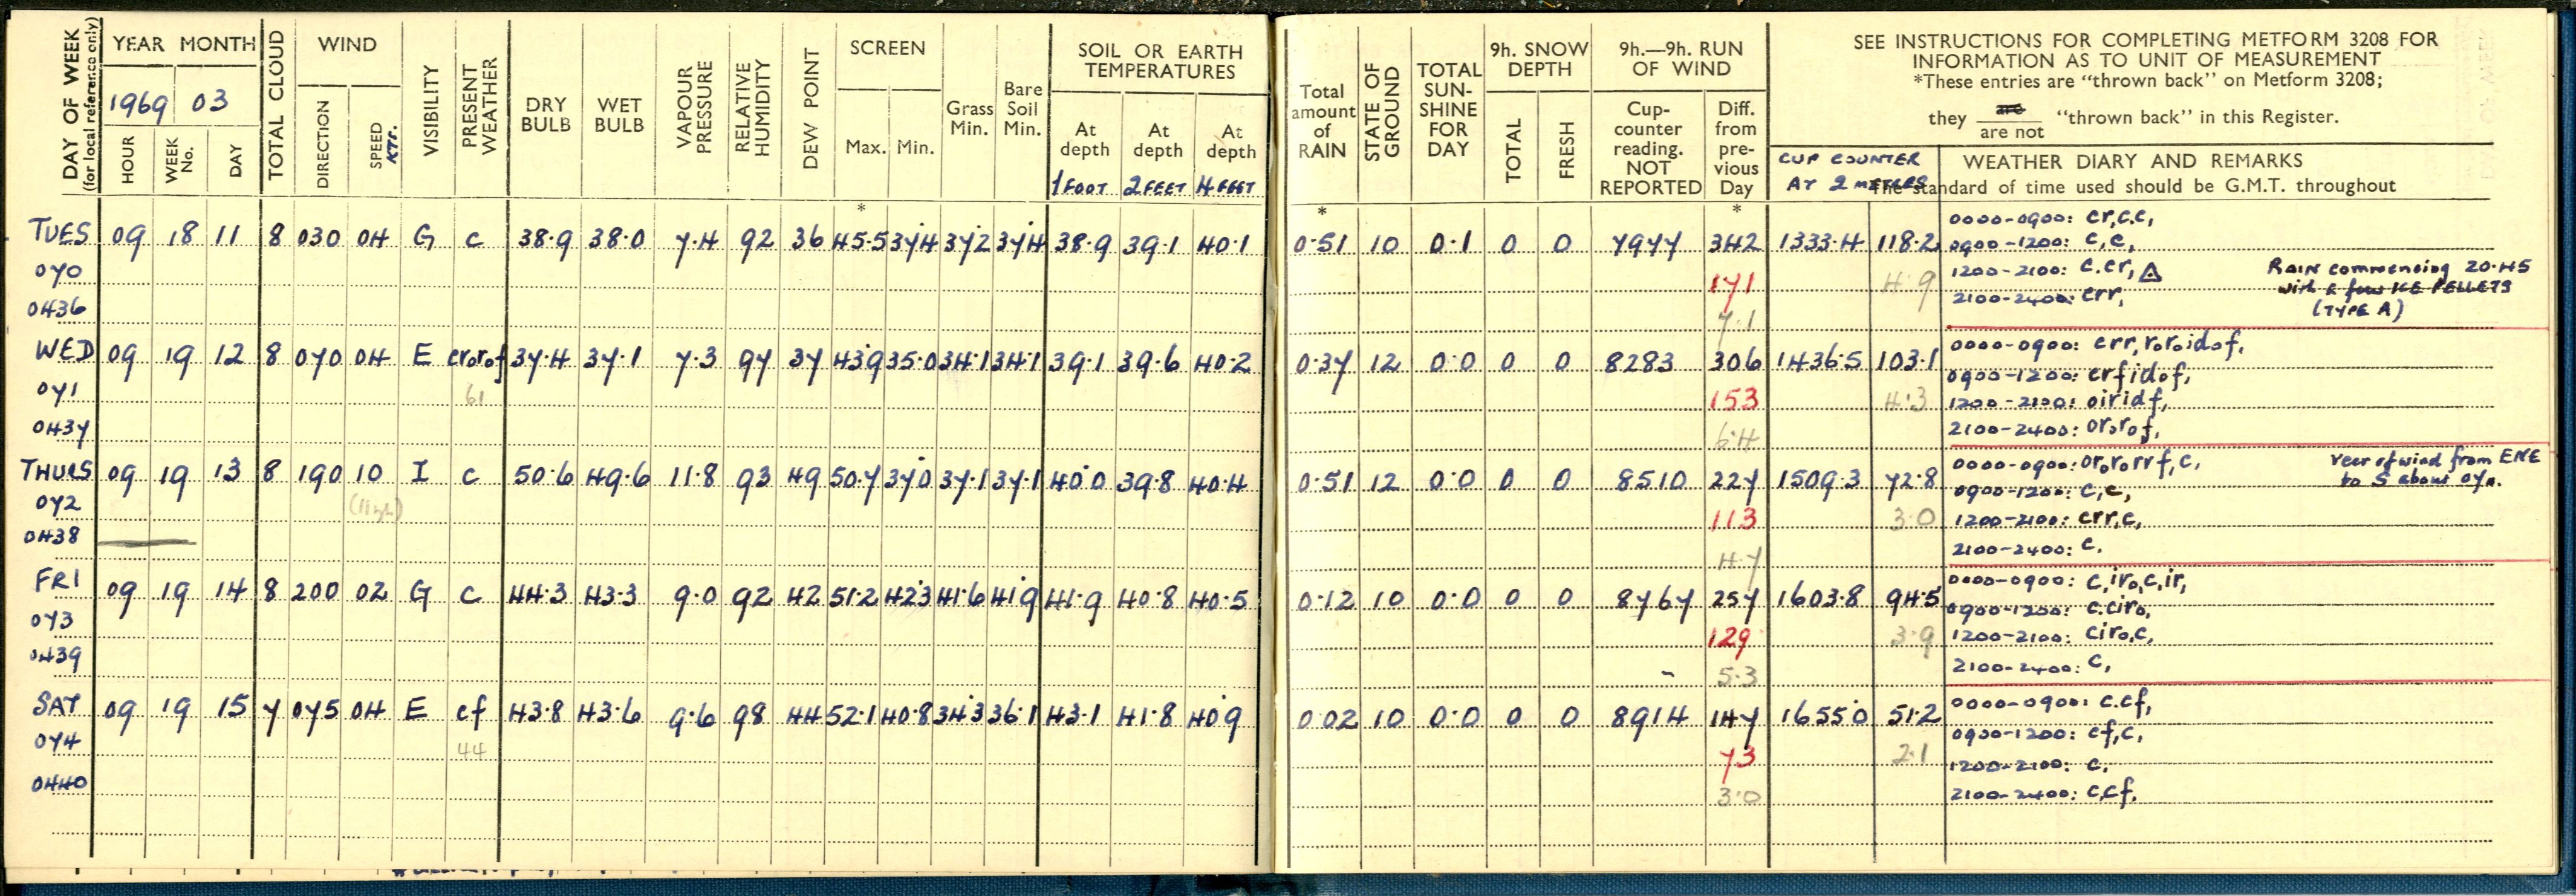 DAY OF WEEK
(for local reference only)
YEAR MONTH
1969 03
HOUR
WEEK No.
DAY
TOTAL CLOUD
WIND
DIRECTION
SPEED KTS.
VISIBILITY
PRESENT WEATHER
DRY BULB
WET BULB
VAPOUR PRESSURE
RELATIVE HUMIDITY
DEW POINT
SCREEN
Max. Min.
Grass Min.
Bare Soil Min.
SOIL OR EARTH
TEMPERATURES
At depth 1 FOOT
At depth 2 FEET
At depth 4 FEET
*
TUES 09 18 11 8 030 04 G c 38.9 38.0 7.4 92 36 45.5 37.4 37.2 37.4 38.9 39.1 40.1
070
0436
WED 09 19 12 8 070 04 E cr₀r₀f 37.4 37.1 7.3 97 37 43.9 35.0 34.1 34.1 39.1 39.6 40.2
071 61
0437
THURS 09 19 13 8 190 10 I c 50.6 49.6 11.8 93 49 50.7 37.0 37.1 37.1 40.0 39.8 40.4
072
0438
FRI 09 19 14 8 200 02 G c 44.3 43.3 9.0 92 42 51.2 42.3 41.6 41.9 41.9 40.8 40.5
073
0439
SAT 09 19 15 7 075 04 E cf 43.8 43.6 9.6 98 44 52.1 40.8 34.3 36.1 43.1 41.8 40.9
074 44
0440
Total amount of RAIN
STATE OF GROUND
TOTAL SUN-SHINE FOR DAY
9h. SNOW DEPTH
TOTAL
FRESH
9h.—9h. RUN OF WIND
Cup-counter reading. NOT REPORTED
Diff. from pre-vious Day
SEE INSTRUCTIONS FOR COMPLETING METFORM 3208 FOR
INFORMATION AS TO UNIT OF MEASUREMENT
*These entries are "thrown back" on Metform 3208;
they are / are not "thrown back" in this Register.
CUP COUNTER
AT 2 METRES
WEATHER DIARY AND REMARKS
The standard of time used should be G.M.T. throughout
* *
0.51 10 0.1 0 0 7977 342 1333.4 118.2
171 4.9
7.1
0000-0900: cr,c.c,
0900-1200: c,c,
1200-2100: c.cr, △
2100-2400: crr,
RAIN commencing 20.45
with a few ICE PELLETS
(TYPE A)
0.37 12 0.0 0 0 8283 306 1436.5 103.1
153 4.3
6.4
0000-0900: crr,r₀r₀id₀f,
0900-1200: crfid₀f,
1200-2100: oiridf,
2100-2400: or₀r₀f,
0.51 12 0.0 0 0 8510 227 1509.3 72.8
113 3.0
4.7
0000-0900: or₀r₀rrf,c,
0900-1200: c,c,
1200-2100: crr,c,
2100-2400: c.
Veer of wind from ENE
to S about 07h.
0.12 10 0.0 0 0 8767 257 1603.8 94.5
129 3.9
- 5.3
0000-0900: c,ir₀,c,ir,
0900-1200: c.cir₀,
1200-2100: cir₀,c,
2100-2400: c,
0.02 10 0.0 0 0 8914 147 1655.0 51.2
73 2.1
3.0
0000-0900: c.cf,
0900-1200: cf,c,
1200-2100: c.
2100-2400: c,cf.